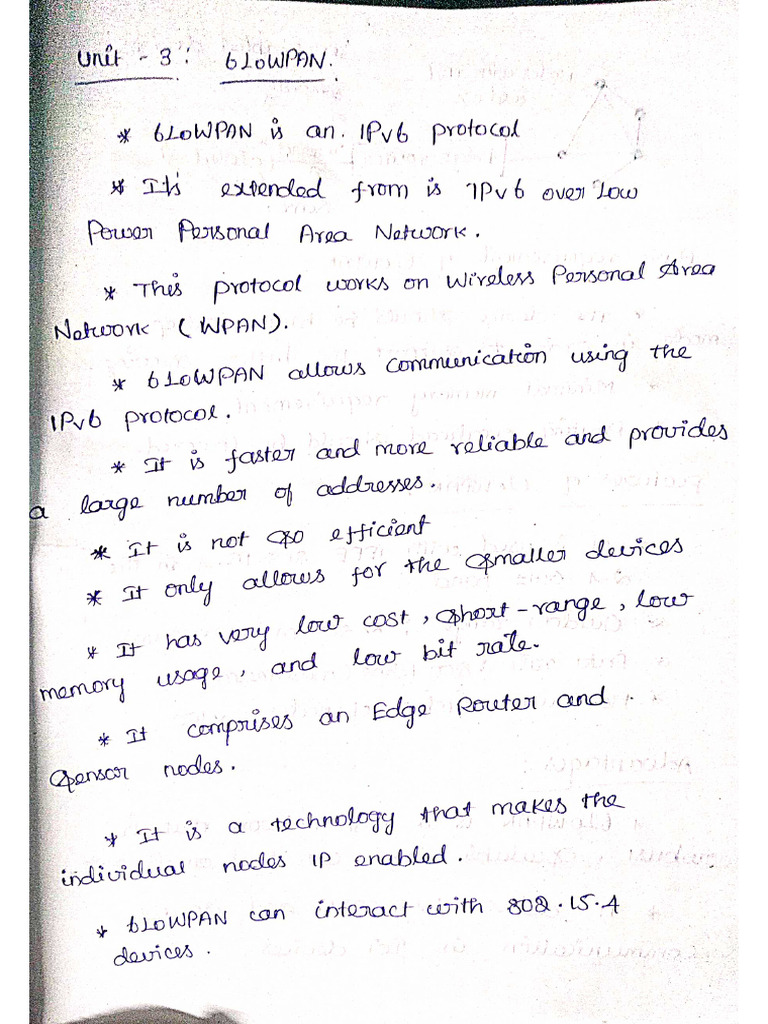 Unit - 3 : 6LoWPAN.
* 6LoWPAN is an. IPv6 protocol
* It's extended from is IPv6 over Low
Power Personal Area Network.
* This protocol works on Wireless Personal Area
Network (WPAN).
* 6LoWPAN allows communication using the
IPv6 protocol.
* It is faster and more reliable and provides
a large number of addresses.
* It is not so efficient
* It only allows for the smaller devices
* It has very low cost, short-range, low
memory usage, and low bit rate.
* It comprises an Edge Router and
Sensor nodes.
* It is a technology that makes the
individual nodes IP enabled.
* 6LoWPAN can interact with 802.15.4
devices.